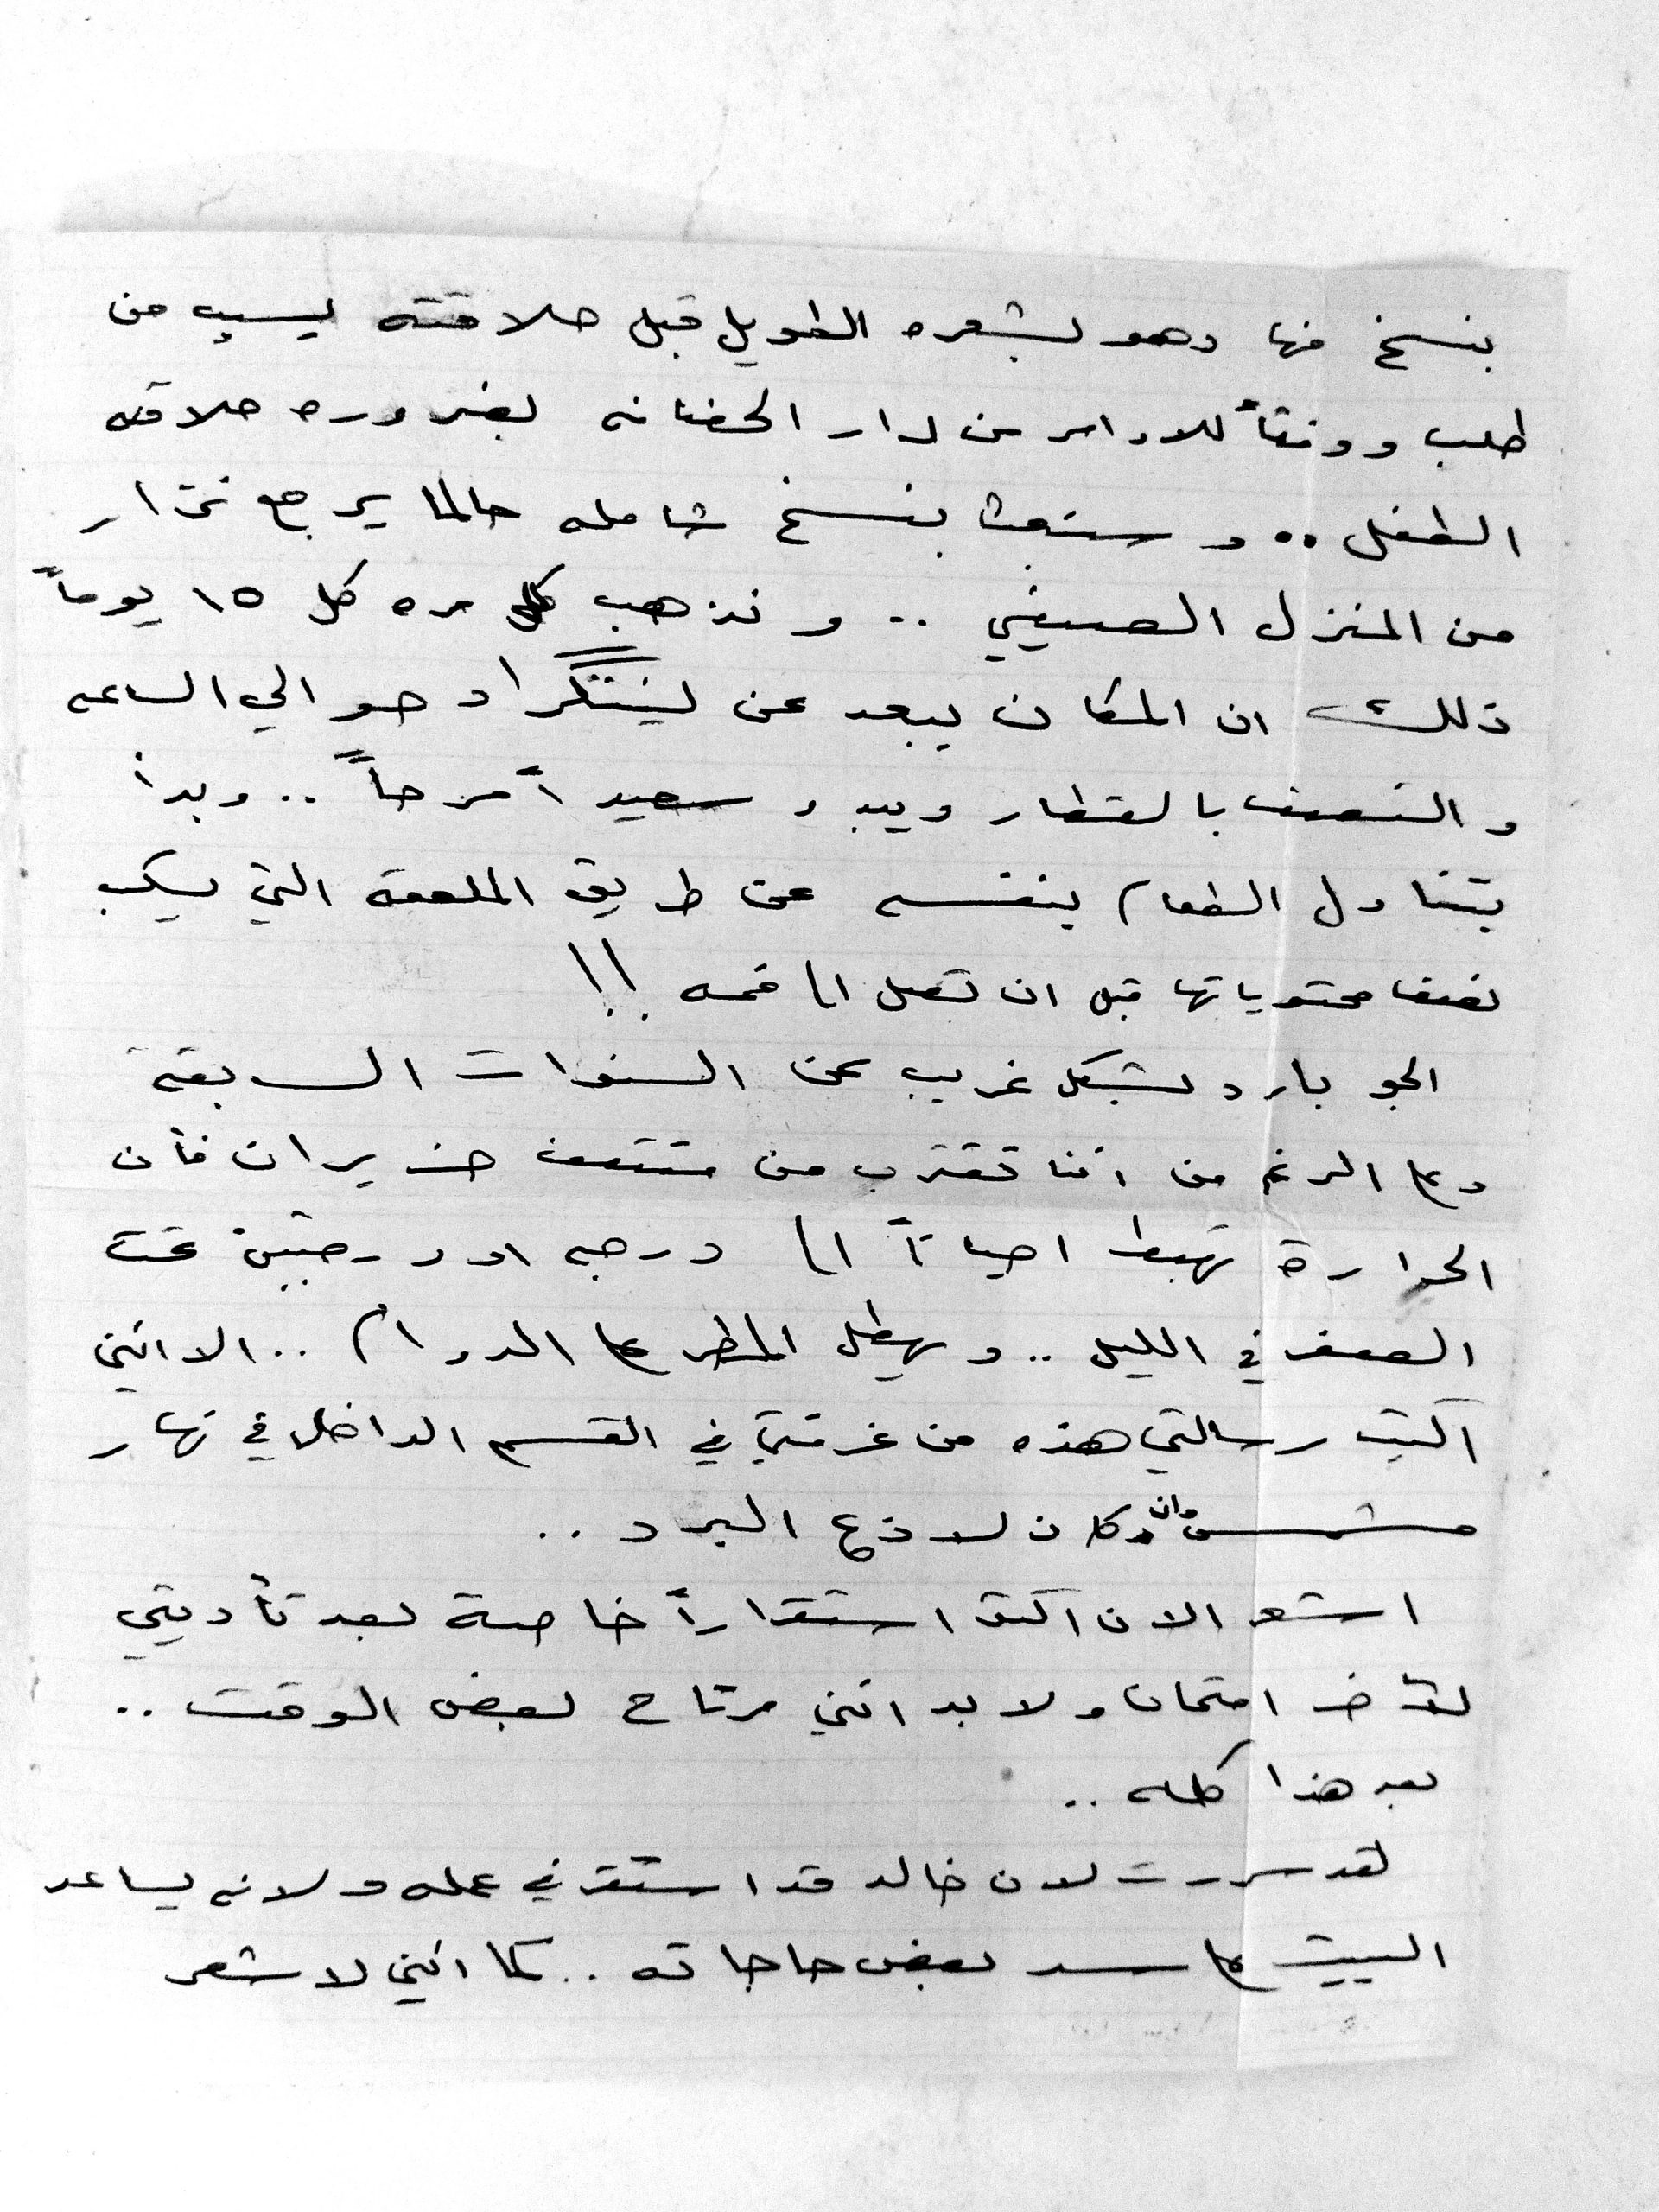 بنسخ منها وهو بشعره الطويل قبل حلاقته بسبب من
طلب ووفقاً للاوامر من دار الحضانه بضروره حلاقه
الطفل .. و سنبعث بنسخ شامله حالما يرجع نزار
من المنزل الصيفي .. و نذهب كل مره كل ١٥ يوماً
ذلك ان المكان يبعد عن لينينگراد حوالي الساعه
و النصف بالقطار ويبدو سعيداً مرحاً .. وبدأ
يتناول الطعام بنفسه عن طريق الملعقه التي يسكب
نصف محتوياتها قبل ان تصل الى فمه !!
الجو بارد بشكل غريب عن السنوات السابقة
وعلى الرغم من اننا نقترب من منتصف حزيران فأن
الحرارة تهبط احياناً الى درجه او درجتين تحت
الصفر في الليل .. و يهطل المطر على الدوام .. الا انني
اكتب رسالتي هذه من غرفتي في القسم الداخلي في نهار
مشمس وان كان لاذع البرد ..
اشعر الان اكثر استقراراً خاصة بعد تأديتي
لآخر امتحان ولا بد انني مرتاح لبعض الوقت ..
بعد هذا كله ..
لقد سررت لان خالد قد استقر في عمله و لانه يساعد
البيت على سد بعض حاجاته .. كما انني لاشعر